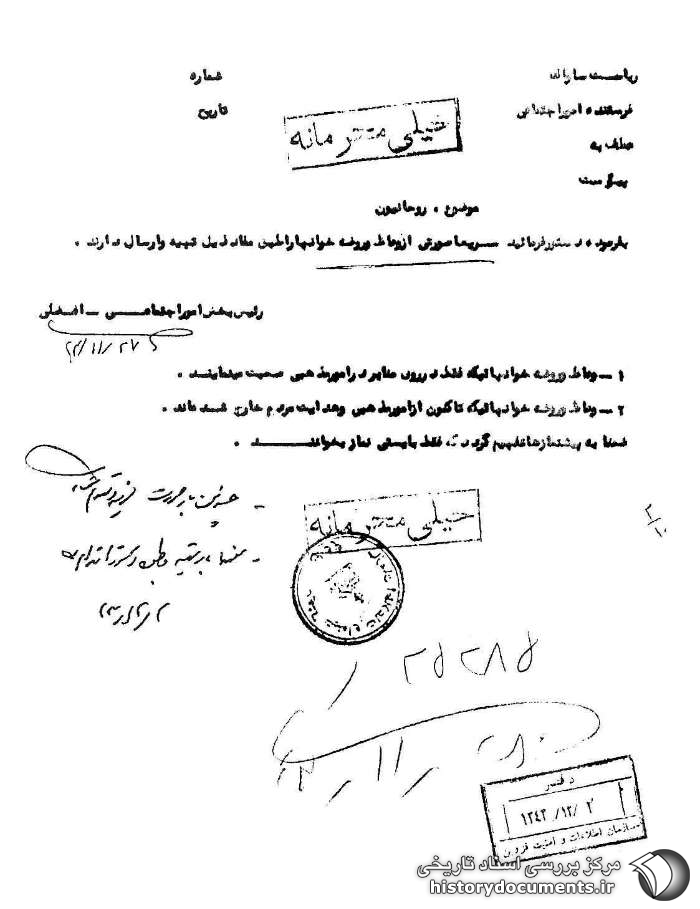 ریاست ساواک
شماره
فرستنده امور اجتماعی
تاریخ
خیلی محرمانه
عطف به
پیوست
موضوع ، روحانیون
بفرموده دستور فرمائید سریعا صورتی از وعاظ وروضه خوانها را طبق مفاد ذیل تهیه وارسال دارند .
رئیس بخش امور اجتماعی – افضلی
۲۷/۱۱/۴۳
۱ – وعاظ وروضه خوانهائیکه فقط در روی منابر در امور مذهبی صحبت مینمایند .
۲ – وعاظ وروضه خوانهائیکه تاکنون از امور مذهبی وهدایت مردم خارج شده اند .
ضمنا به پیشنمازها تفهیم گردد که فقط بایستی نماز بخوانند .
خیلی محرمانه
۲/۱۰
۲۵۲۸۵ /
۴۳-۱۱-۲۸
دفتر
۱۳۴۳/۱۲/۲
سازمان اطلاعات و امنیت قزوین
مرکز بررسی اسناد تاریخی
historydocuments.ir